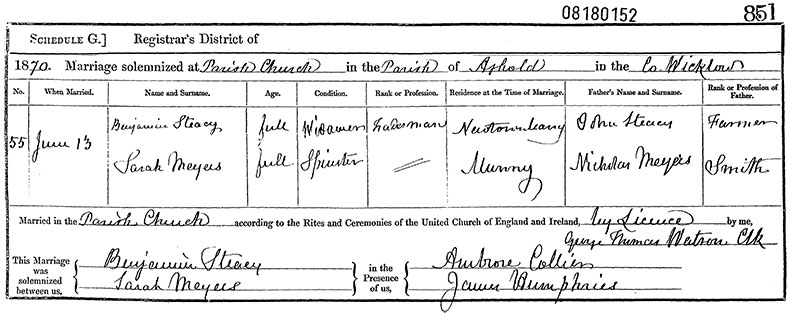 08180152 851
SCHEDULE G.] Registrar's District of
1870. Marriage solemnized at Parish Church in the Parish of Aghold in the Co Wicklow
No. When Married. Name and Surname. Age. Condition. Rank or Profession. Residence at the Time of Marriage. Father's Name and Surname. Rank or Profession of Father.
55 June 13 Benjamin Steacy full Widower tradesman John Steacy Farmer
Sarah Meyers full Spinster Munny Nicholas Meyers Smith
Married in the Parish Church according to the Rites and Ceremonies of the United Church of England and Ireland, by Licence by me,
George Thomas Watson Clk
This Marriage was solemnized between us, Benjamin Steacy in the Presence of us, Ambrose Collier
Sarah Meyers James Humphries